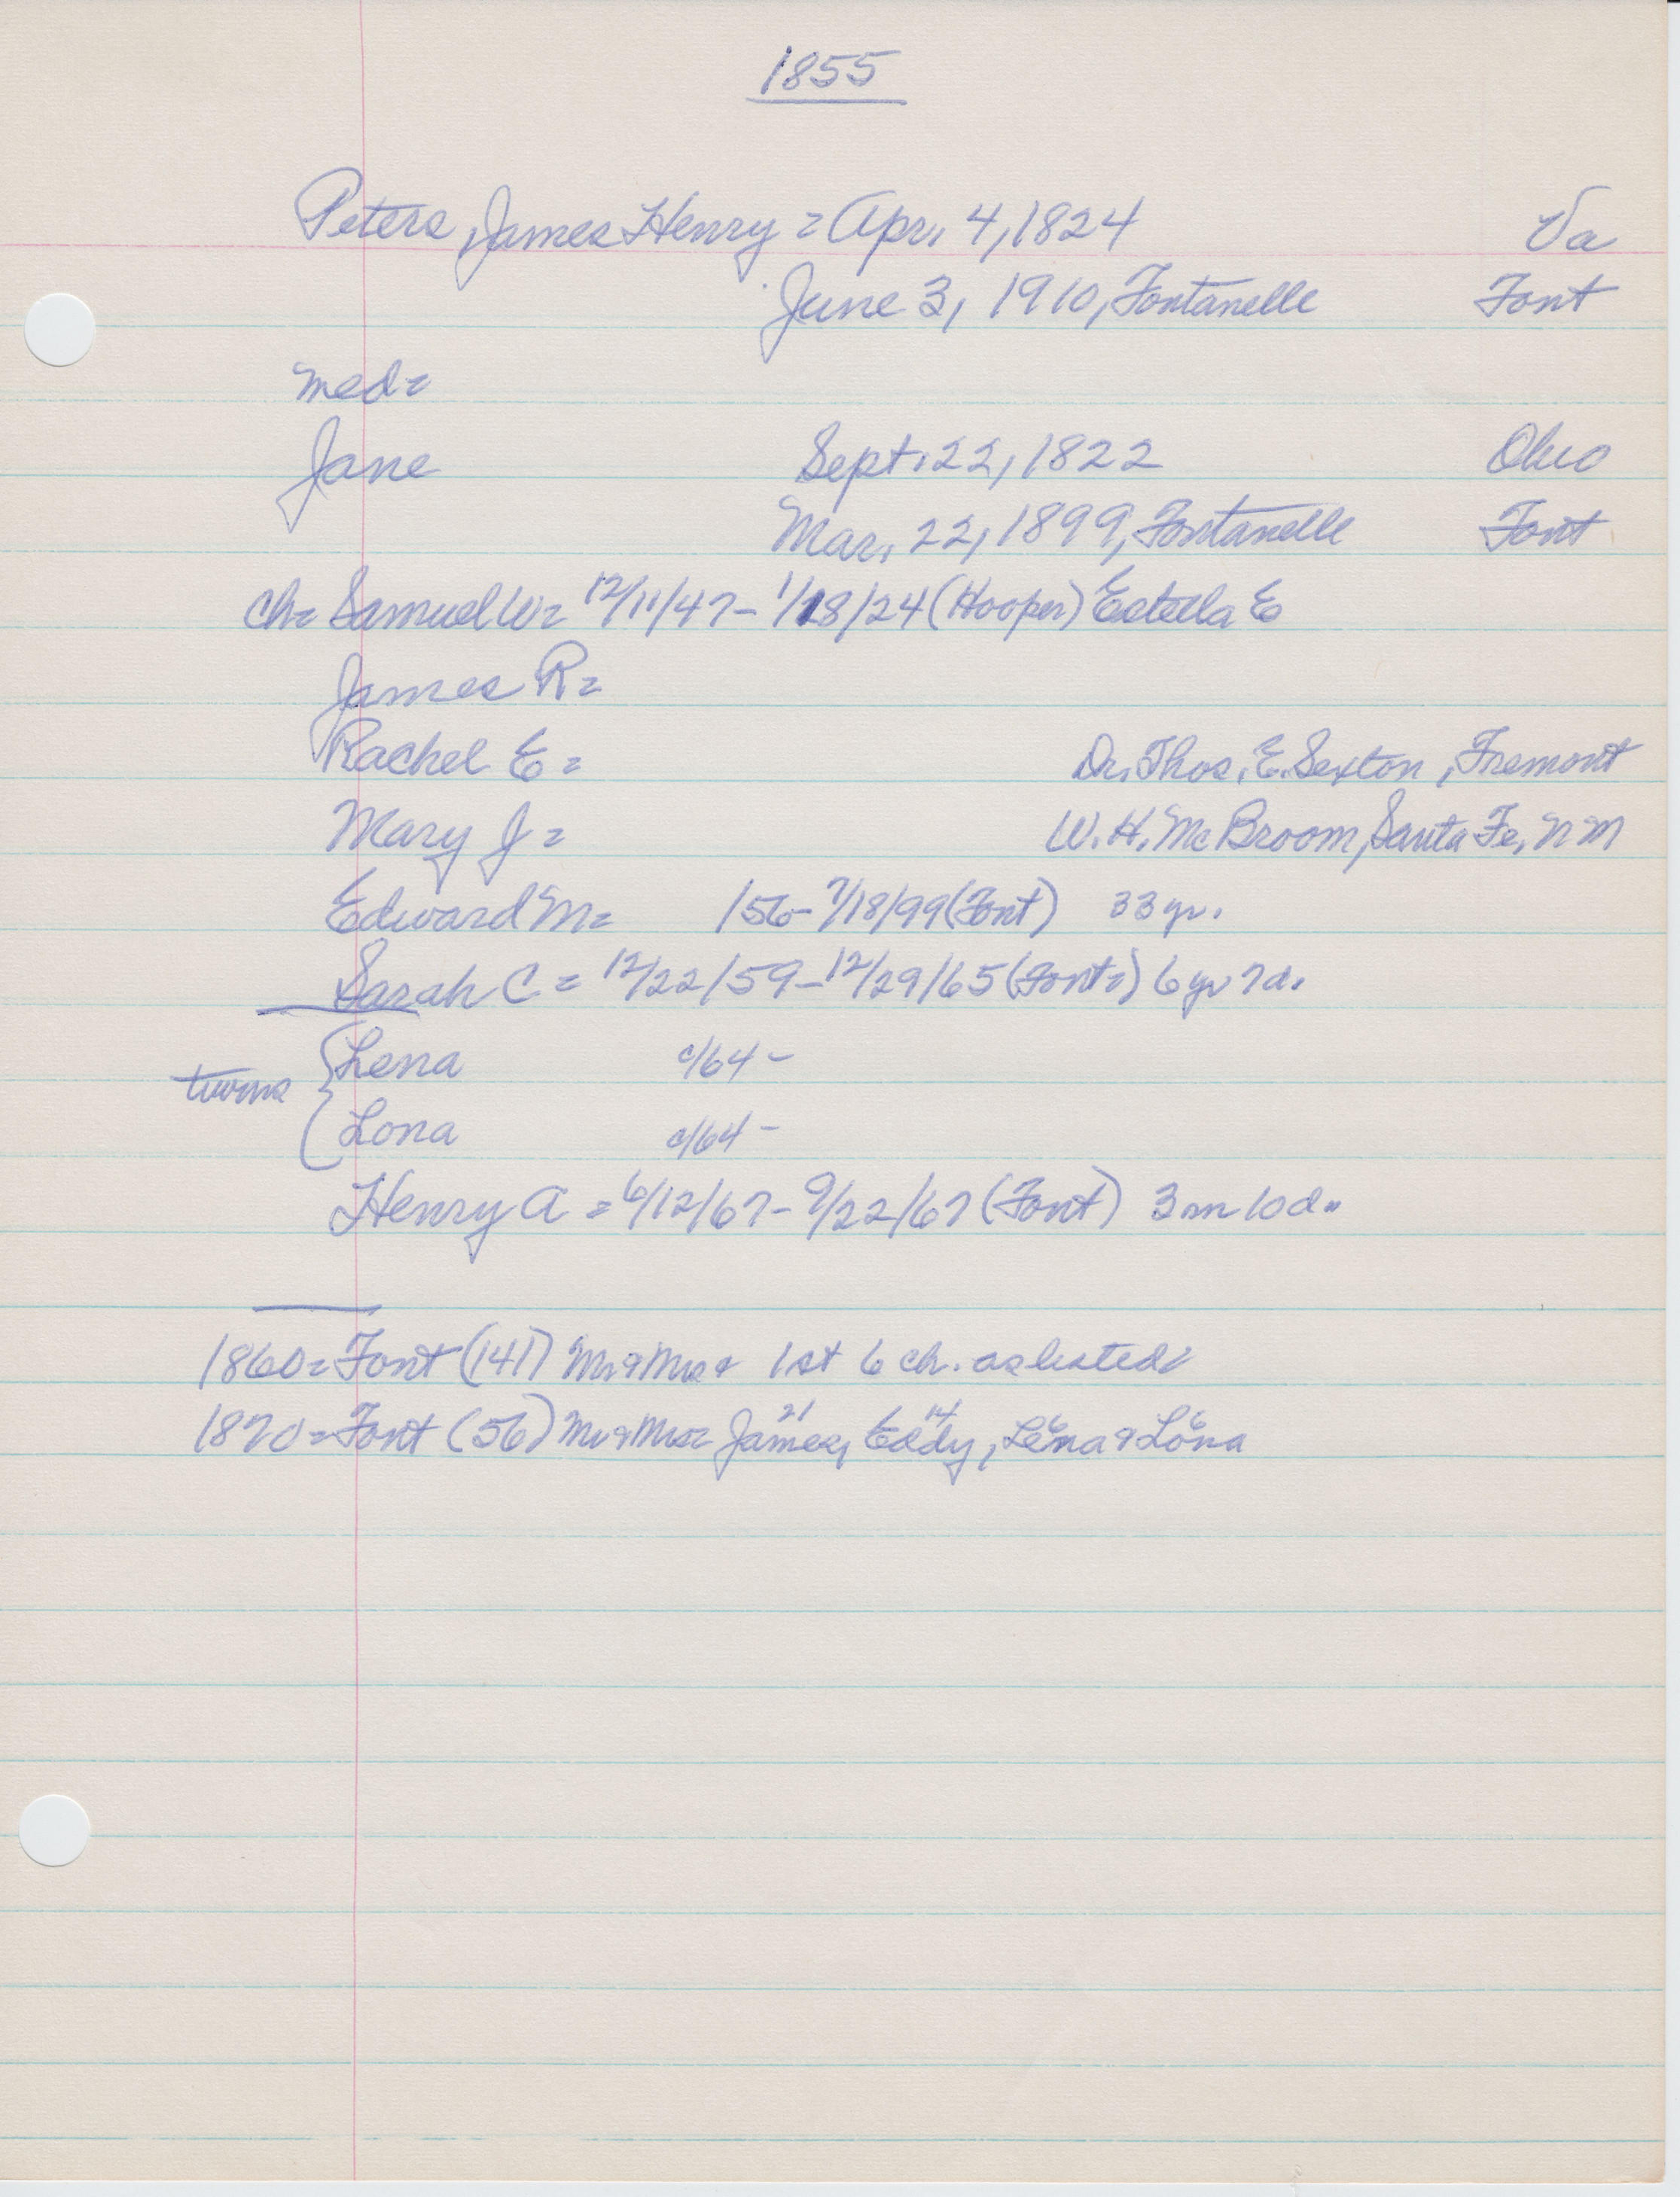 1855
Peters, James Henry = Apr. 4, 1824 Va
June 3, 1910, Fontanelle Font
med=
Jane Sept. 22, 1822 Ohio
Mar. 22, 1899, Fontanelle Font
ch= Samuel W= 12/11/47- 1/18/24 (Hooper) Estella E
James R=
Rachel E= Dr. Thos. E. Sexton, Fremont
Mary J= W. H. McBroom, Santa Fe, NM
Edward M= /56- 7/18/99 (Font) 33 yr.
Sarah C = 12/22/59-12/29/65 (Font=) 6 yr 7 d.
twins { Lena c/64-
Lona c/64-
Henry A = 6/12/67- 9/22/67 (Font) 3m 10d.
1860= Font (141) Mr & Mrs & 1st 6 ch. as listed
21 14 6 6
1870= Font (56) Mr & Mrs= James, Eddy, Lena & Lona